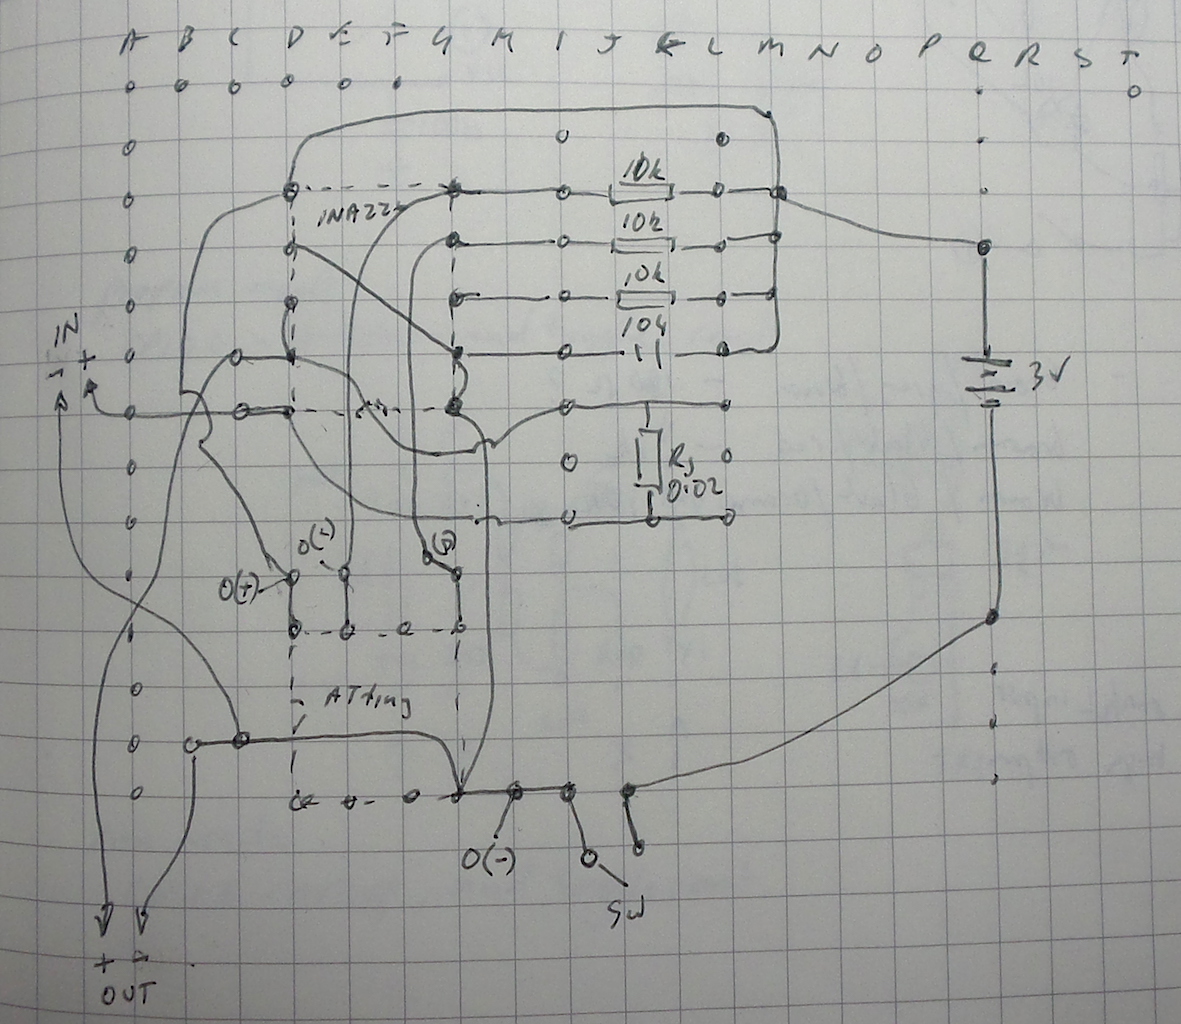 A B C D E F G H I J K L M N O P Q R S T
10k
INA22
10k
10k
104
IN
- +
3V
Rs
0.02
O(-)
O(+)
ATtiny
O(-)
SW
+ -
OUT